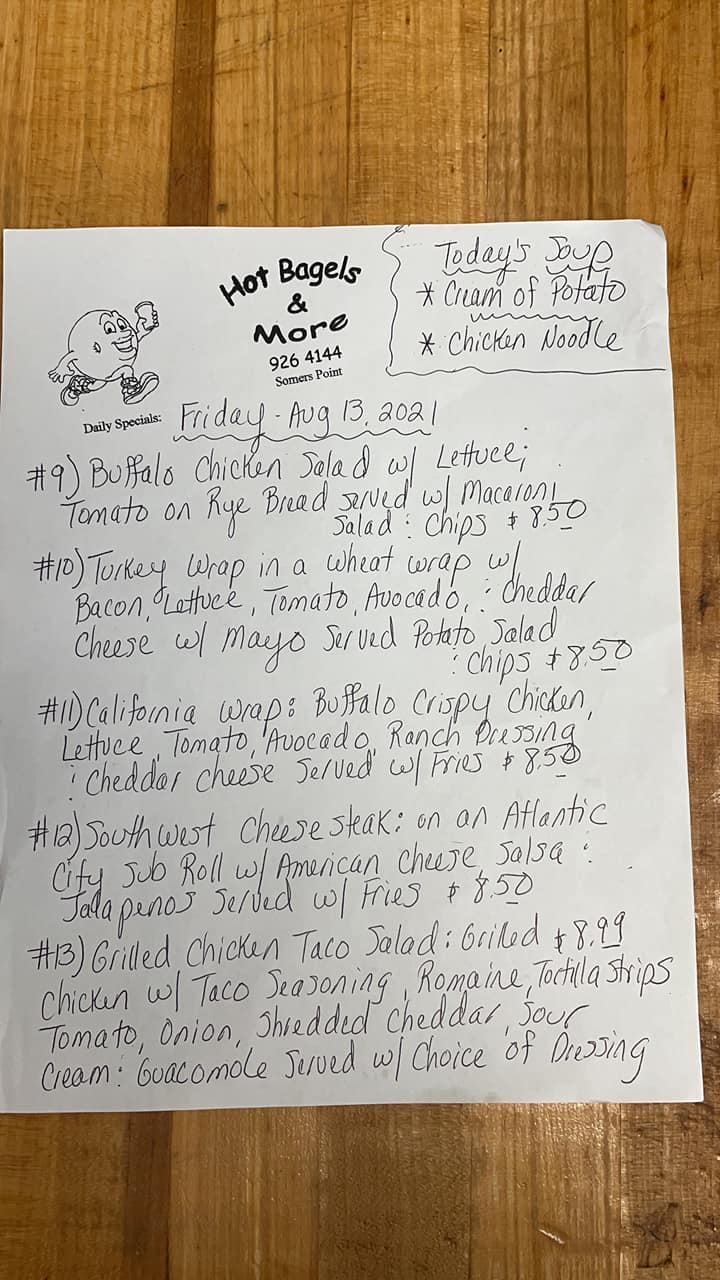 Hot Bagels
&
More
926 4144
Somers Point
Today's Soup
* Cream of Potato
* Chicken Noodle
Daily Specials: Friday - Aug 13, 2021
#9) Buffalo Chicken Salad w/ Lettuce;
Tomato on Rye Bread served w/ Macaroni
Salad : Chips $8.50
#10) Turkey Wrap in a wheat wrap w/
Bacon, Lettuce, Tomato, Avocado, : Cheddar
Cheese w/ Mayo Served Potato Salad
: Chips $8.50
#11) California Wrap: Buffalo Crispy Chicken,
Lettuce, Tomato, Avocado, Ranch Dressing
: Cheddar cheese Served w/ Fries $8.50
#12) Southwest Cheesesteak: on an Atlantic
City Sub Roll w/ American Cheese, Salsa :
Jalapenos Served w/ Fries $8.50
#13) Grilled Chicken Taco Salad: Grilled $8.99
Chicken w/ Taco Seasoning, Romaine, Tortilla Strips
Tomato, Onion, Shredded Cheddar, Sour
Cream : Guacomole Served w/ Choice of Dressing